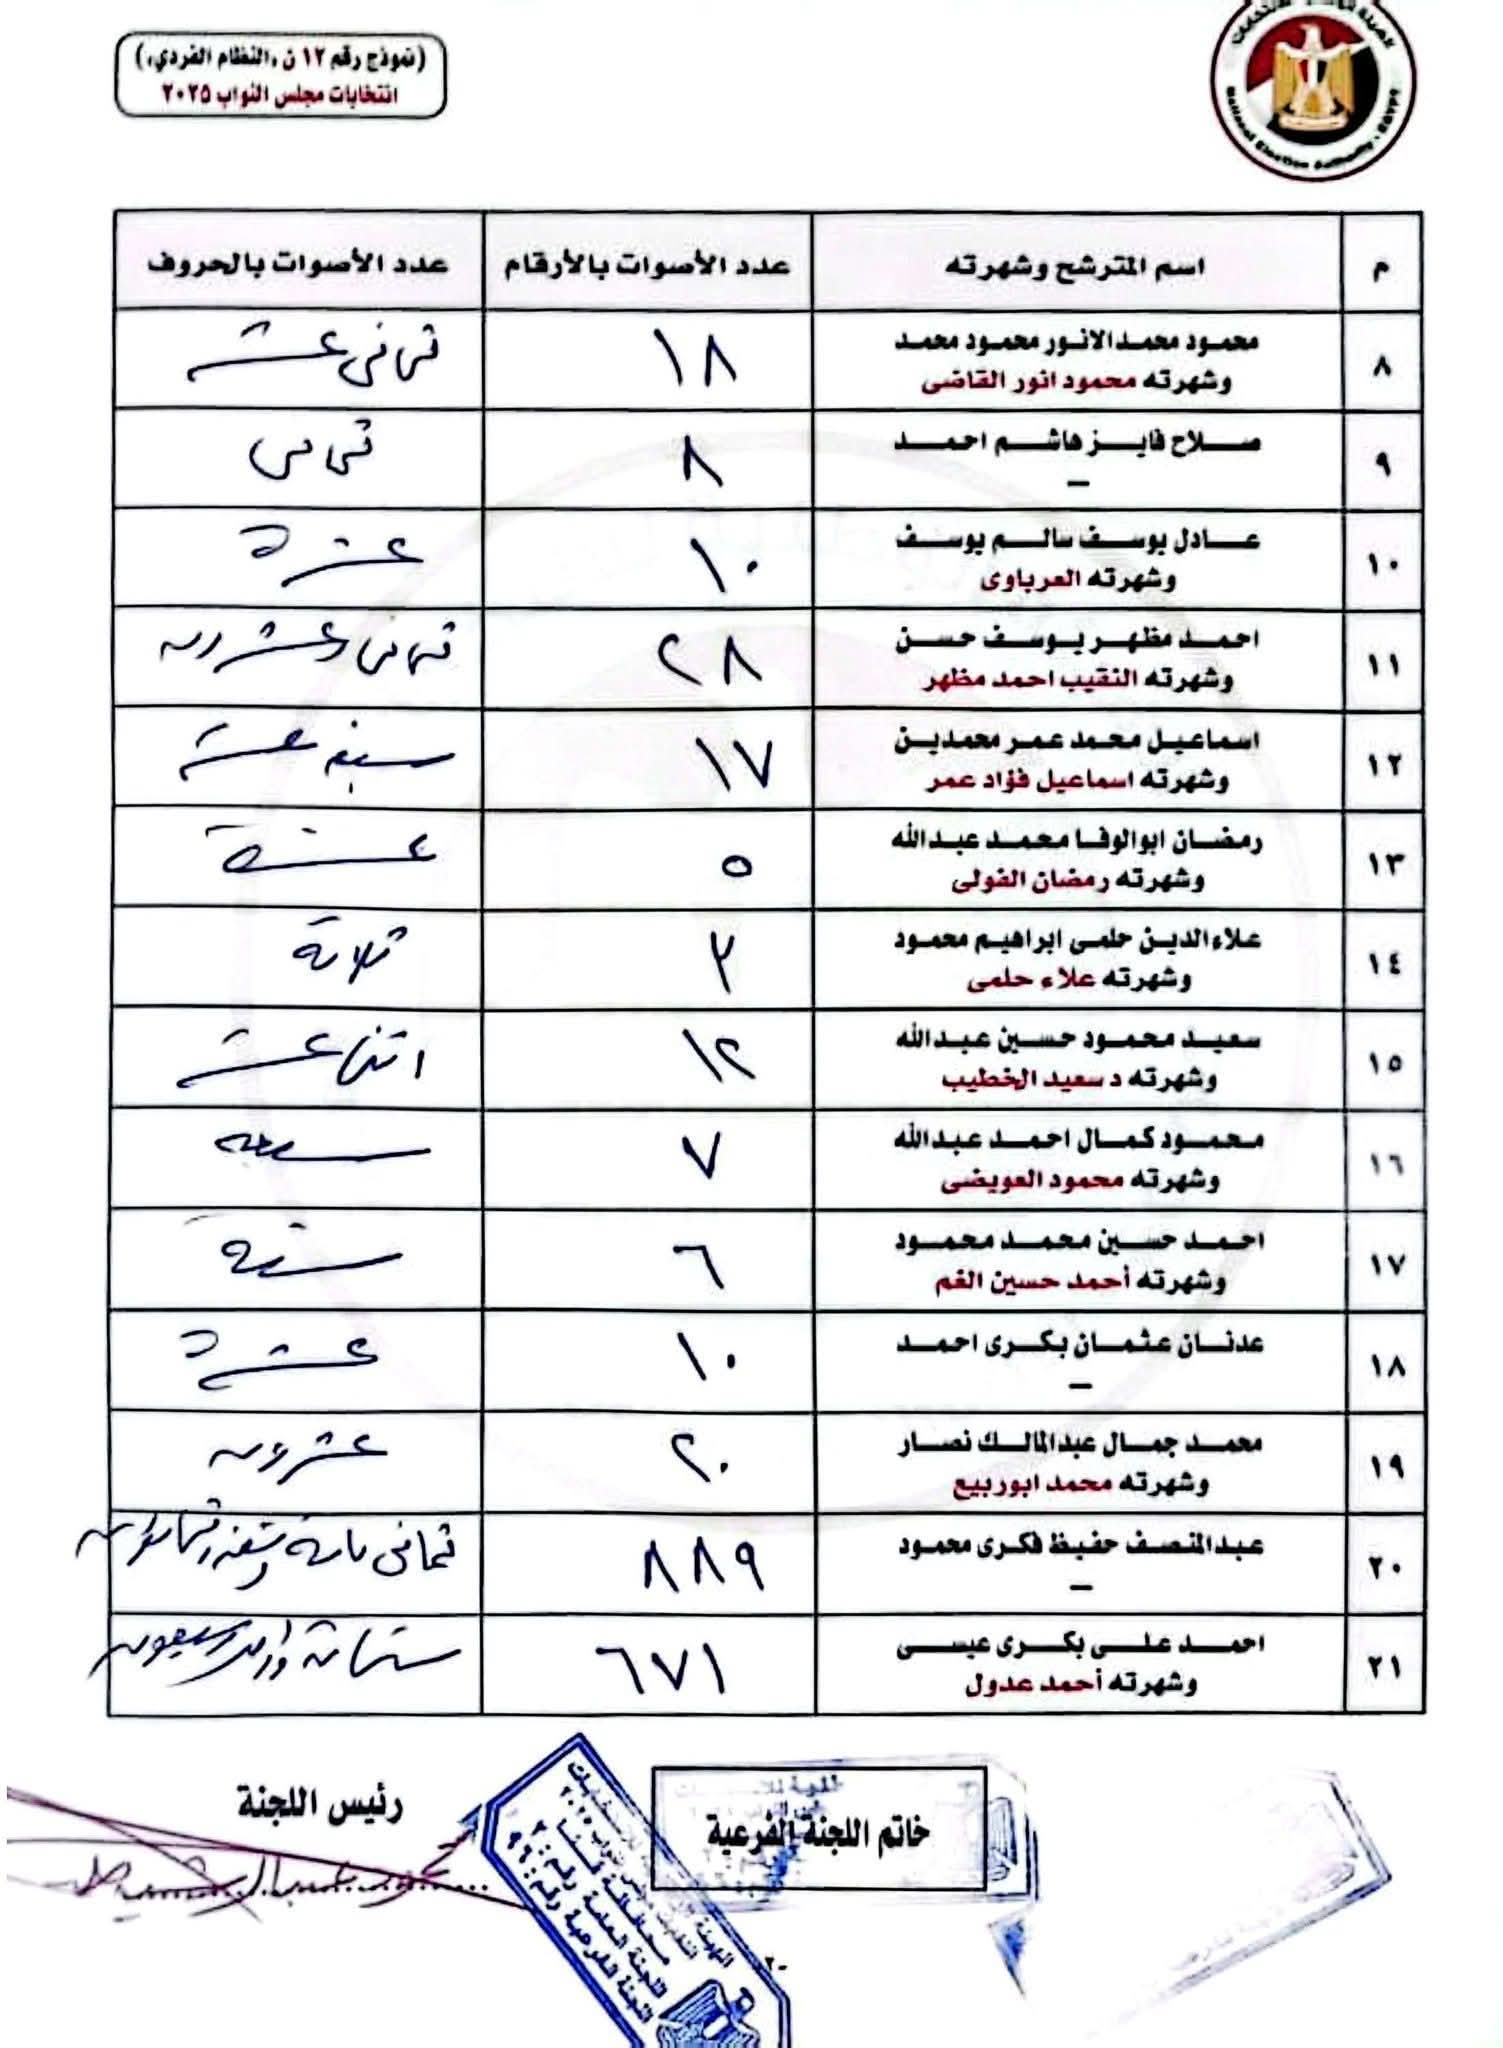 (نموذج رقم ١٢ ن «النظام الفردي»)
انتخابات مجلس النواب ٢٠٢٥
National Election Authority - EGYPT
م اسم المترشح وشهرته عدد الأصوات بالأرقام عدد الأصوات بالحروف
٨ محمود محمد الانور محمود محمد ١٨ ثمانى عشر
وشهرته محمود انور القاضى
٩ صلاح فايز هاشم احمد ٨ ثمانى
–
١٠ عادل يوسف سالم يوسف ١٠ عشرة
وشهرته العرباوى
١١ احمد مظهر يوسف حسن ٢٨ ثمانى وعشرون
وشهرته النقيب احمد مظهر
١٢ اسماعيل محمد عمر محمدين ١٧ سبعة عشر
وشهرته اسماعيل فؤاد عمر
١٣ رمضان ابوالوفا محمد عبدالله ٥
وشهرته رمضان الفولى
١٤ علاءالدين حلمى ابراهيم محمود ٣ ثلاثة
وشهرته علاء حلمى
١٥ سعيد محمود حسين عبدالله ١٢ اثنا عشر
وشهرته د سعيد الخطيب
١٦ محمود كمال احمد عبدالله ٧ سبعة
وشهرته محمود العويضى
١٧ احمد حسين محمد محمود ٦ ستة
وشهرته أحمد حسين الغم
١٨ عدنان عثمان بكرى احمد ١٠ عشرة
–
١٩ محمد جمال عبدالمالك نصار ٢٠ عشرون
وشهرته محمد ابوربيع
٢٠ عبدالمنصف حفيظ فكرى محمود ٨٨٩ ثمانى مائة وتسعة وثمانون
–
٢١ احمد على بكرى عيسى ٦٧١ ستمائة وواحد وسبعون
وشهرته أحمد عدول
خاتم اللجنة الفرعية
رئيس اللجنة
محافظة قنا
اللجنة العامة رقم : ٢
اللجنة الفرعية رقم : ٩٦